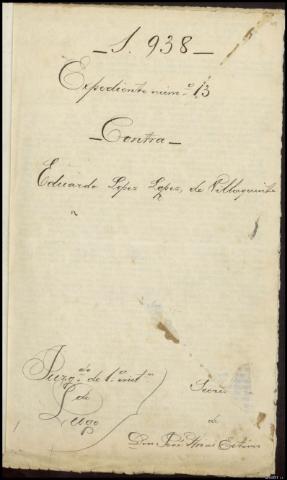 1.938
Expediente núm.º 13
Contra
Eduardo López López, de Villaquinte
Juzg.do de 1.ª inst.ª
de
Lugo
Secrió
de
Don José